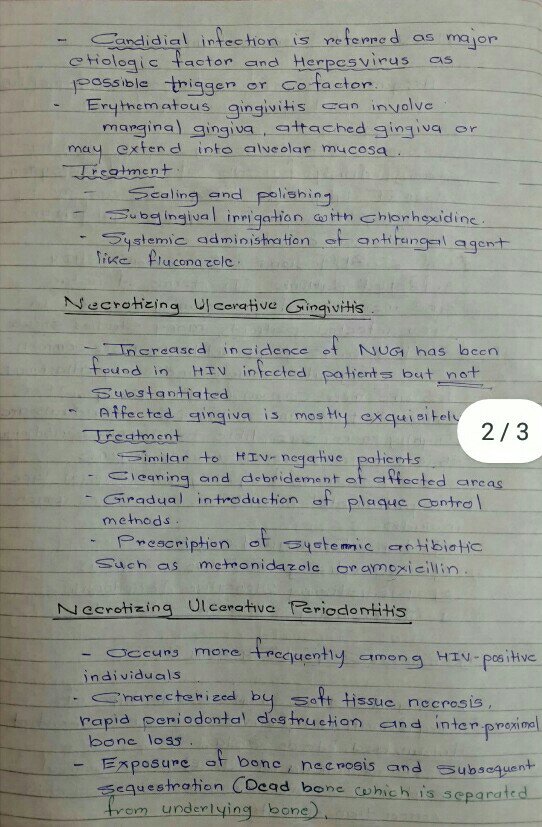 - Candidial infection is referred as major
etiologic factor and Herpesvirus as
possible trigger or cofactor.
- Erythematous gingivitis can involve
marginal gingiva, attached gingiva or
may extend into alveolar mucosa.
Treatment.
- Scaling and polishing
- Subgingival irrigation with chlorhexidine.
- Systemic administration of antifungal agent
like fluconazole.
Necrotizing Ulcerative Gingivitis.
- Increased incidence of NUG has been
found in HIV infected patients but not
Substantiated
- Affected gingiva is mostly exquisitely
2/3
Treatment
Similar to HIV-negative patients
- Cleaning and debridement of affected areas
- Gradual introduction of plaque control
methods.
- Prescription of systemic antibiotic
Such as metronidazole or amoxicillin.
Necrotizing Ulcerative Periodontitis
- Occurs more frequently among HIV-positive
individuals
- Charecterized by soft tissue necrosis,
rapid periodontal destruction and interproximal
bone loss.
- Exposure of bone, necrosis and subsequent
sequestration (Dead bone which is separated
from underlying bone).